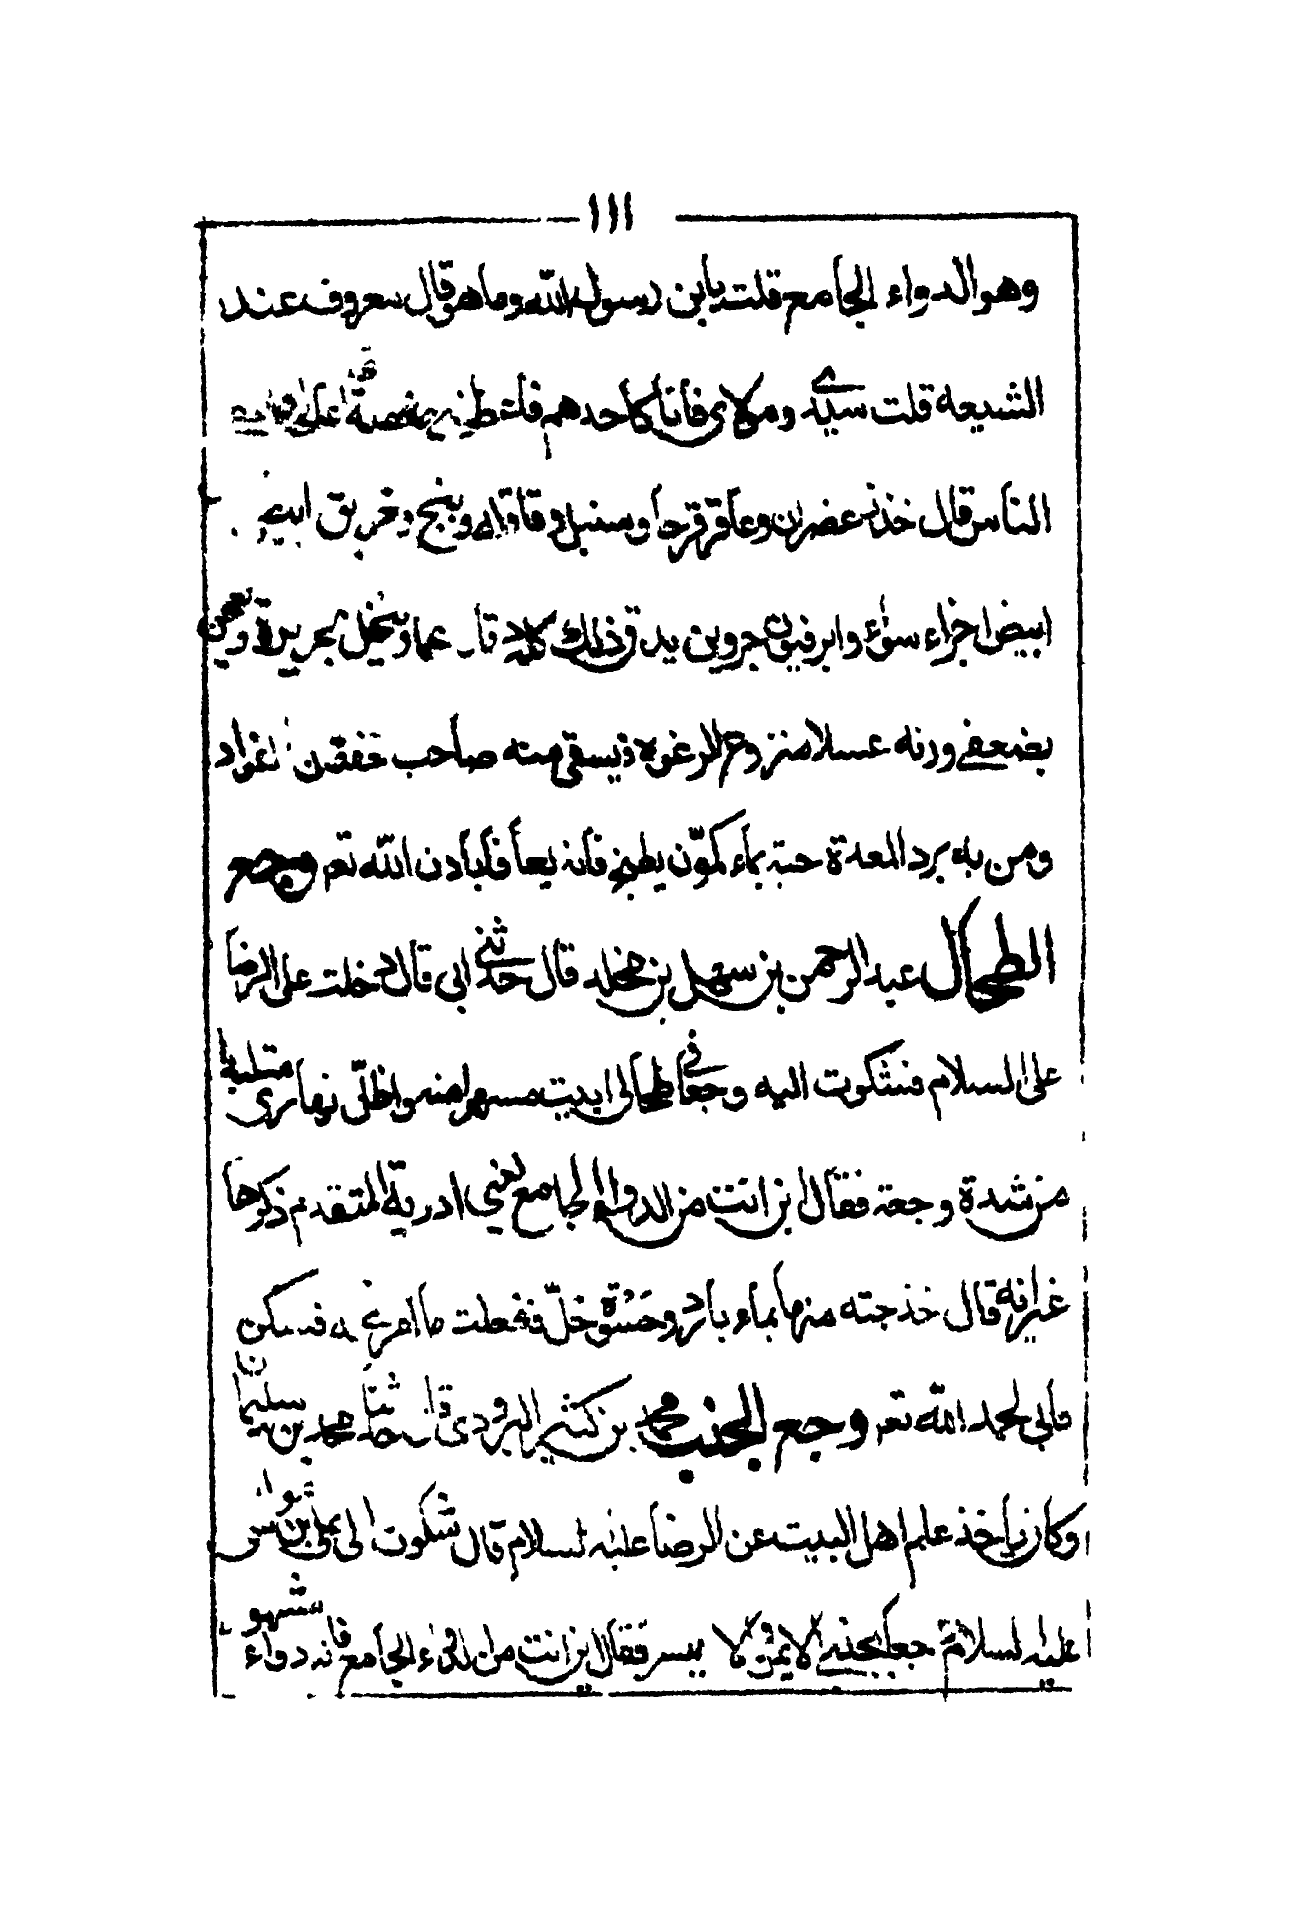 ١١١
وهو الدواء الجامع قلت يابن رسول الله وما هو قال معروف عند
الشيعه قلت سيدي ومولاي فانا كاحدهم فاعطني صفته اعالج
الناس قال خذ زعفران وعاقرقرحا وسنبل وقاقله وبنج وخربق ابيض
ابيض اجزاء سواء وابرفيون جزوين يدق ذلك كله ناعما وينخل بحريرة ويعجن
بضعفي وزنه عسلا منزوع الرغوه فيسقى منه صاحب خفقان الفواد
ومن به برد المعدة حبة بماء كمون يطبخ فانه يعافا باذن الله تعم وجع
الطحال عبد الرحمن بن سهل بن مخلد قال حدثني ابي قال دخلت على الرضا
عليه السلام فشكوت اليه وجعا في طحالى ابيت مسهرا منه واظل نهاري متلبدا
من شدة وجعه فقال اين انت من الدواء الجامع يعني ادرية المتقدم ذكرها
غير انه قال خذ حبته منها بماء بارد وحسوة خل ففعلت ما امرني به فسكن
مابي لحمد الله تعم وجع الجنب محمد بن كثير البرودي قال حدثنا محمد بن سليمان
وكان ياخذ علم اهل البيت عن الرضا عليه لسلام قال شكوت الى علي بن
عليه لسلام وجعا بجنبي الايمن والا يسر فقال اين انت من الدواء الجامع فانه دواء مشهور